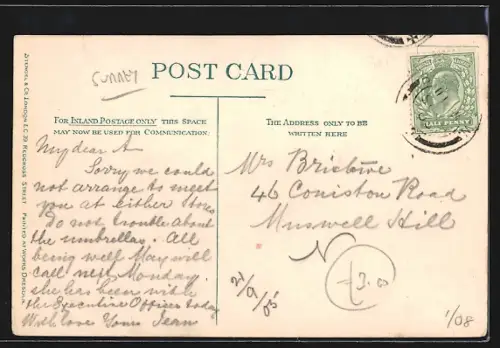 SURREY
POST CARD
FOR INLAND POSTAGE ONLY THIS SPACE
MAY NOW BE USED FOR COMMUNICATION.
THE ADDRESS ONLY TO BE
WRITTEN HERE
HALF PENNY
My dear A
Sorry we could
not arrange to meet
you at either
Do not trouble about
the umbrellas. All
being well May will
call next Monday.
she has been with
the Executive Officer today
With love Yours Jean
Mrs Bristow
46 Coniston Road
Muswell Hill
N
21/9/05
£3.00
1/08
STENGEL & CO. LONDON E.C. 39 REDCROSS STREET PRINTED AT WORKS DRESDEN